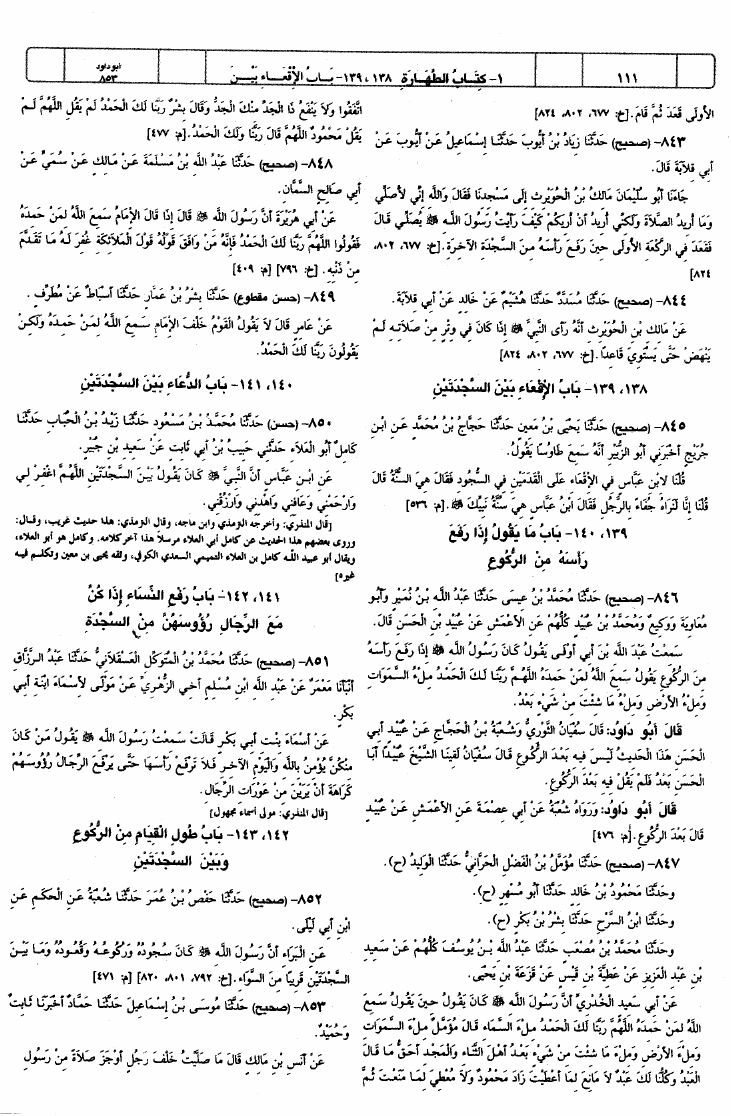 ١١١
١- كتَابُ الطَّهَارَة ١٣٨، ١٣٩- بَابُ الإِقْعَاءِ بَيْنَ
أبو داود
٨٥٣
الأُولَى قَعَدَ ثُمَّ قَامَ. [خ: ٦٧٧، ٨٠٢، ٨٢٤]
٨٤٣- (صحيح) حَدَّثَنَا زِيَادُ بْنُ أَيُّوبَ حَدَّثَنَا إِسْمَاعِيلُ عَنْ أَيُّوبَ عَنْ
أَبِي قِلاَبَةَ قَالَ.
جَاءَنَا أَبُو سُلَيْمَانَ مَالكُ بْنُ الْحُوَيْرِثِ إِلَى مَسْجِدنَا فَقَالَ وَاللَّه إِنِّي لأُصَلِّي
وَمَا أُرِيدُ الصَّلاَةَ وَلَكنِّي أُرِيدُ أَنْ أُرِيَكُمْ كَيْفَ رَأَيْتُ رَسُولَ اللَّه ﷺ يُصَلِّي قَالَ
فَقَعَدَ فِي الرَّكْعَة الأُولَى حينَ رَفَعَ رَأْسَهُ منَ السَّجْدَة الآخرَة. [خ: ٦٧٧، ٨٠٢،
٨٢٤]
٨٤٤- (صحيح) حَدَّثَنَا مُسَدَّدٌ حَدَّثَنَا هُشَيْمٌ عَنْ خَالد عَنْ أَبِي قلاَبَةَ.
عَنْ مَالك بْنِ الْحُوَيْرِث أَنَّهُ رَأَى النَّبِيَّ ﷺ إِذَا كَانَ فِي وِتْرٍ منْ صَلاَته لَمْ
يَنْهَضْ حَتَّى يَسْتَوِيَ قَاعداً. [خ: ٦٧٧، ٨٠٢، ٨٢٤]
١٣٨، ١٣٩- بَابُ الإِقْعَاءِ بَيْنَ السَّجْدَتَيْنِ
٨٤٥- (صحيح) حَدَّثَنَا يَحْيَى بْنُ مَعين حَدَّثَنَا حَجَّاجُ بْنُ مُحَمَّد عَنِ ابْنِ
جُرَيْجٍ أَخْبَرَنِي أَبُو الزُّبَيْرِ أَنَّهُ سَمِعَ طَاوُسًا يَقُولُ.
قُلْنَا لابْنِ عَبَّاسٍ فِي الإِقْعَاء عَلَى الْقَدَمَيْنِ فِي السُّجُود فَقَالَ هيَ السُّنَّةُ قَالَ
قُلْنَا إِنَّا لَنَرَاهُ جُفَاءً بِالرَّجُلِ فَقَالَ ابْنُ عَبَّاسٍ هيَ سُنَّةُ نَبِيِّكَ ﷺ. [م: ٥٣٦]
١٣٩، ١٤٠- بَابُ مَا يَقُولُ إِذَا رَفَعَ
رَأْسَهُ مِنَ الرُّكُوعِ
٨٤٦- (صحيح) حَدَّثَنَا مُحَمَّدُ بْنُ عيسَى حَدَّثَنَا عَبْدُ اللَّه بْنُ نُمَيْرٍ وَأَبُو
مُعَاوِيَةَ وَوَكيعٌ وَمُحَمَّدُ بْنُ عُبَيْد كُلُّهُمْ عَنِ الأَعْمَشِ عَنْ عُبَيْد بْنِ الْحَسَنِ قَالَ.
سَمعْتُ عَبْدَ اللَّه بْنَ أَبِي أَوْفَى يَقُولُ كَانَ رَسُولُ اللَّه ﷺ إِذَا رَفَعَ رَأْسَهُ
منَ الرُّكُوعِ يَقُولُ سَمعَ اللَّهُ لمَنْ حَمدَهُ اللَّهُمَّ رَبَّنَا لَكَ الْحَمْدُ ملْءُ السَّمَوَات
وَملْءُ الأَرْضِ وَملْءُ مَا شئْتَ منْ شَيْء بَعْدُ.
قَالَ أَبُو دَاوُد: قَالَ سُفْيَانُ الثَّوْرِيُّ وَشُعْبَةُ بْنُ الْحَجَّاجِ عَنْ عُبَيْد أَبِي
الْحَسَنِ هَذَا الْحَديثُ لَيْسَ فيه بَعْدَ الرُّكُوعِ قَالَ سُفْيَانُ لَقينَا الشَّيْخَ عُبَيْداً أَبَا
الْحَسَنِ بَعْدُ فَلَمْ يَقُلْ فيه بَعْدَ الرُّكُوعِ.
قَالَ أَبُو دَاوُد: وَرَوَاهُ شُعْبَةُ عَنْ أَبِي عصْمَةَ عَنِ الأَعْمَشِ عَنْ عُبَيْد
قَالَ بَعْدَ الرُّكُوعِ. [م: ٤٧٦]
٨٤٧- (صحيح) حَدَّثَنَا مُؤَمَّلُ بْنُ الْفَضْلِ الْحَرَّانِيُّ حَدَّثَنَا الْوَلِيدُ (ح).
وحَدَّثَنَا مَحْمُودُ بْنُ خَالد حَدَّثَنَا أَبُو مُسْهِرٍ (ح).
وحَدَّثَنَا ابْنُ السَّرْحِ حَدَّثَنَا بِشْرُ بْنُ بَكْرٍ (ح).
وحَدَّثَنَا مُحَمَّدُ بْنُ مُصْعَبٍ حَدَّثَنَا عَبْدُ اللَّه بْنُ يُوسُفَ كُلُّهُمْ عَنْ سَعيد
بْنِ عَبْد الْعَزِيزِ عَنْ عَطيَّةَ بْنِ قَيْسٍ عَنْ قَزَعَةَ بْنِ يَحْيَى.
عَنْ أَبِي سَعيد الْخُدْرِيِّ أَنَّ رَسُولَ اللَّه ﷺ كَانَ يَقُولُ حينَ يَقُولُ سَمعَ
اللَّهُ لمَنْ حَمدَهُ اللَّهُمَّ رَبَّنَا لَكَ الْحَمْدُ ملْءَ السَّمَاء قَالَ مُؤَمَّلٌ ملْءَ السَّمَوَات
وَملْءَ الأَرْضِ وَملْءَ مَا شئْتَ منْ شَيْء بَعْدُ أَهْلَ الثَّنَاء وَالْمَجْد أَحَقُّ مَا قَالَ
الْعَبْدُ وَكُلُّنَا لَكَ عَبْدٌ لاَ مَانعَ لمَا أَعْطَيْتَ زَادَ مَحْمُودٌ وَلاَ مُعْطيَ لمَا مَنَعْتَ ثُمَّ
اتَّفَقُوا وَلاَ يَنْفَعُ ذَا الْجَدِّ منْكَ الْجَدُّ وَقَالَ بِشْرٌ رَبَّنَا لَكَ الْحَمْدُ لَمْ يَقُلِ اللَّهُمَّ لَمْ
يَقُلْ مَحْمُودٌ اللَّهُمَّ قَالَ رَبَّنَا وَلَكَ الْحَمْدُ. [م: ٤٧٧]
٨٤٨- (صحيح) حَدَّثَنَا عَبْدُ اللَّه بْنُ مَسْلَمَةَ عَنْ مَالك عَنْ سُمَيٍّ عَنْ
أَبِي صَالحٍ السَّمَّان.
عَنْ أَبِي هُرَيْرَةَ أَنَّ رَسُولَ اللَّه ﷺ قَالَ إِذَا قَالَ الإِمَامُ سَمعَ اللَّهُ لمَنْ حَمدَهُ
فَقُولُوا اللَّهُمَّ رَبَّنَا لَكَ الْحَمْدُ فَإِنَّهُ مَنْ وَافَقَ قَوْلُهُ قَوْلَ الْمَلاَئكَة غُفرَ لَهُ مَا تَقَدَّمَ
منْ ذَنْبِه. [خ: ٧٩٦] [م: ٤٠٩]
٨٤٩- (حسن مقطوع) حَدَّثَنَا بِشْرُ بْنُ عَمَّار حَدَّثَنَا أَسْبَاطٌ عَنْ مُطَرِّف.
عَنْ عَامرٍ قَالَ لاَ يَقُولُ الْقَوْمُ خَلْفَ الإِمَامِ سَمعَ اللَّهُ لمَنْ حَمدَهُ وَلَكنْ
يَقُولُونَ رَبَّنَا لَكَ الْحَمْدُ.
١٤٠، ١٤١- بَابُ الدُّعَاءِ بَيْنَ السَّجْدَتَيْنِ
٨٥٠- (حسن) حَدَّثَنَا مُحَمَّدُ بْنُ مَسْعُود حَدَّثَنَا زَيْدُ بْنُ الْحُبَابِ حَدَّثَنَا
كَاملٌ أَبُو الْعَلاَء حَدَّثَنِي حَبِيبُ بْنُ أَبِي ثَابت عَنْ سَعيد بْنِ جُبَيْرٍ.
عَنِ ابْنِ عَبَّاسٍ أَنَّ النَّبِيَّ ﷺ كَانَ يَقُولُ بَيْنَ السَّجْدَتَيْنِ اللَّهُمَّ اغْفرْ لي
وَارْحَمْنِي وَعَافِنِي وَاهْدنِي وَارْزُقْنِي.
[قال المنذري: وأخرجه الترمذي وابن ماجه، وقال الترمذي: هذا حديث غريب، وقال:
وروى بعضهم هذا الحديث عن كامل أبي العلاء مرسلاً هذا آخر كلامه. وكامل هو أبو العلاء،
ويقال أبو عبيد اللـه كامل بن العلاء التميمي السعدي الكوفي، وثقه يحيى بن معين وتكلم فيه
غيره]
١٤١، ١٤٢- بَابُ رَفْعِ النِّسَاءِ إِذَا كُنَّ
مَعَ الرِّجَالِ رُؤُوسَهُنَّ مِنَ السَّجْدَةِ
٨٥١- (صحيح) حَدَّثَنَا مُحَمَّدُ بْنُ الْمُتَوَكِّلِ الْعَسْقَلاَنِيُّ حَدَّثَنَا عَبْدُ الرَّزَّاقِ
أَنْبَأَنَا مَعْمَرٌ عَنْ عَبْد اللَّه ابْنِ مُسْلمٍ أَخِي الزُّهْرِيِّ عَنْ مَوْلًى لأَسْمَاءَ ابْنَة أَبِي
بَكْرٍ.
عَنْ أَسْمَاءَ بِنْت أَبِي بَكْرٍ قَالَتْ سَمعْتُ رَسُولَ اللَّه ﷺ يَقُولُ مَنْ كَانَ
منْكُنَّ يُؤْمنُ بِاللَّه وَالْيَوْمِ الآخرِ فَلاَ تَرْفَعْ رَأْسَهَا حَتَّى يَرْفَعَ الرِّجَالُ رُؤُوسَهُمْ
كَرَاهَةَ أَنْ يَرَيْنَ منْ عَوْرَات الرِّجَالِ.
[قال المنذري: مولى أسماء مجهول]
١٤٢، ١٤٣- بَابُ طُولِ الْقِيَامِ مِنَ الرُّكُوعِ
وَبَيْنَ السَّجْدَتَيْنِ
٨٥٢- (صحيح) حَدَّثَنَا حَفْصُ بْنُ عُمَرَ حَدَّثَنَا شُعْبَةُ عَنِ الْحَكَمِ عَنِ
ابْنِ أَبِي لَيْلَى.
عَنِ الْبَرَاءِ أَنَّ رَسُولَ اللَّه ﷺ كَانَ سُجُودُهُ وَرُكُوعُهُ وَقُعُودُهُ وَمَا بَيْنَ
السَّجْدَتَيْنِ قَرِيبًا منَ السَّوَاء. [خ: ٧٩٢، ٨٠١، ٨٢٠] [م: ٤٧١]
٨٥٣- (صحيح) حَدَّثَنَا مُوسَى بْنُ إِسْمَاعيلَ حَدَّثَنَا حَمَّادٌ أَخْبَرَنَا ثَابتٌ
وَحُمَيْدٌ.
عَنْ أَنَسِ بْنِ مَالك قَالَ مَا صَلَّيْتُ خَلْفَ رَجُلٍ أَوْجَزَ صَلاَةً منْ رَسُولِ